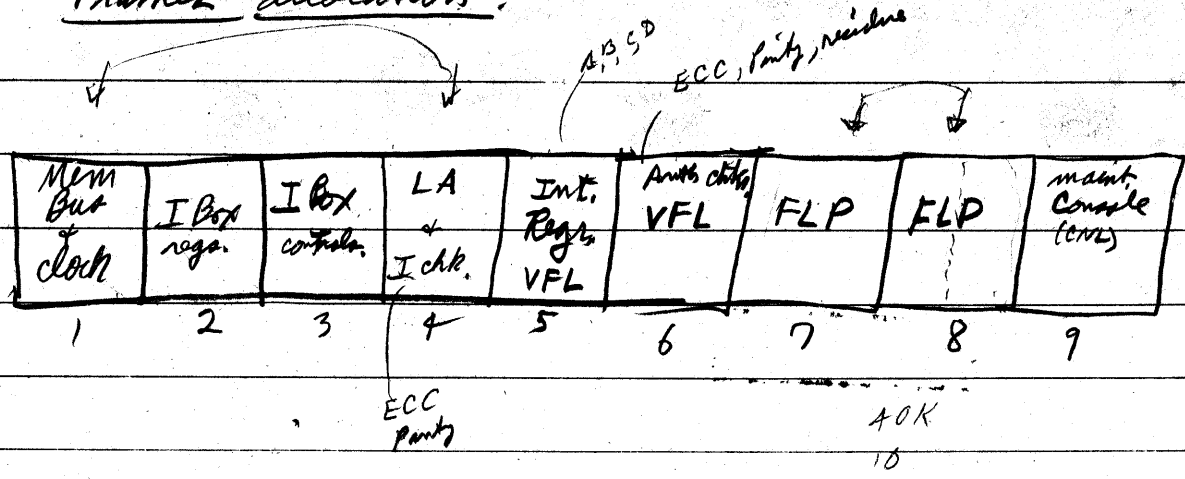 A, B, C, D
ECC, Parity, residue
Mem
Bus
&
clock
I Box
regs.
I Box
controls.
LA
&
I chk.
Int.
Regs.
VFL
Arith chks.
VFL
FLP
FLP
maint.
Console
(CNL)
1 2 3 4 5 6 7 8 9
ECC
Parity